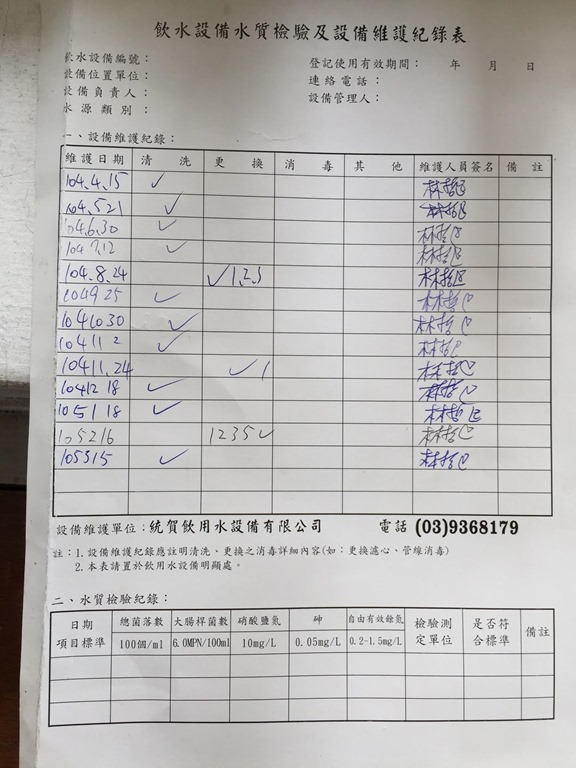 飲水設備水質檢驗及設備維護紀錄表
飲水設備編號：
登記使用有效期間： 年 月 日
設備位置單位：
連絡電話：
設備負責人：
設備管理人：
水源類別：
一、設備維護紀錄：
維護日期 清洗 更換 消毒 其他 維護人員簽名 備註
104.4.15 ✓
104.5.21 ✓
104.6.30 ✓
104.7.12 ✓
104.8.24 ✓1,2,3
104 9 25 ✓
104 10 30 ✓
104 11 2 ✓
104 11.24 ✓1
104 12 18 ✓
105 1 18 ✓
105 2 16 1235✓
105 3 15 ✓
設備維護單位：統賀飲用水設備有限公司 電話 (03)9368179
註：1.設備維護紀錄應註明清洗、更換之消毒詳細內容(如：更換濾心、管線消毒)
2.本表請置於飲用水設備明顯處。
二、水質檢驗紀錄：
日期 項目標準 總菌落數 大腸桿菌數 硝酸鹽氮 砷 自由有效餘氯 檢驗測定單位 是否符合標準 備註
100個/ml 6.0MPN/100ml 10mg/L 0.05mg/L 0.2-1.5mg/L